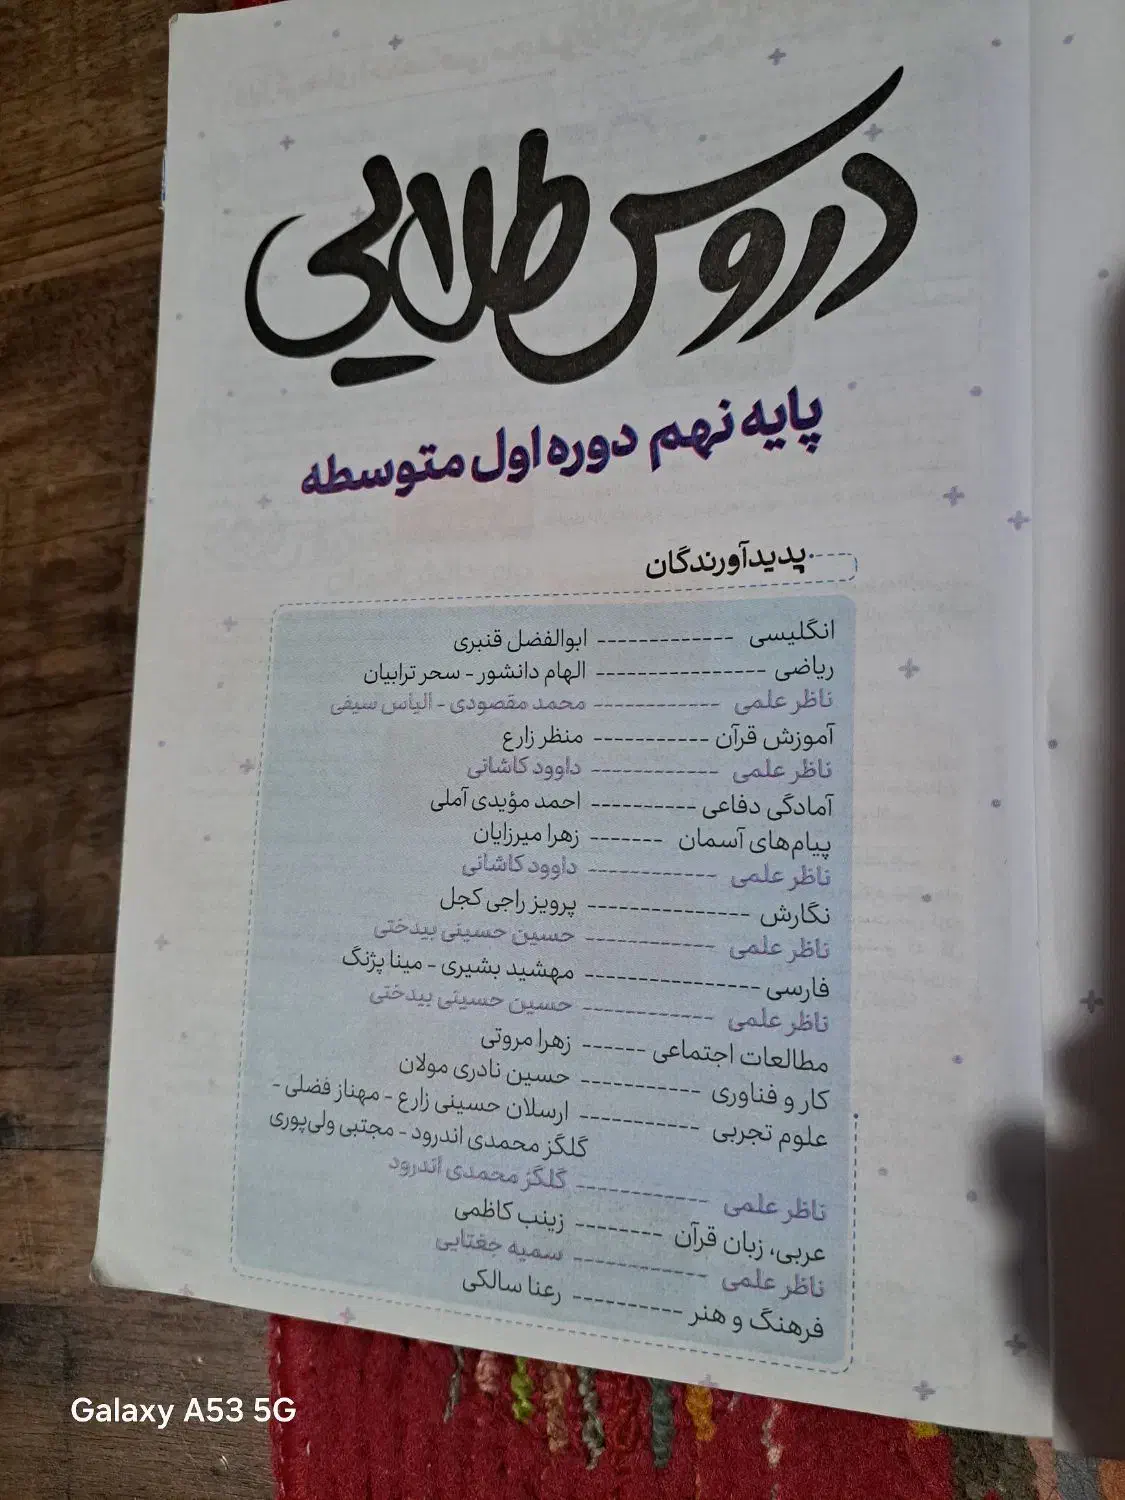 دروس طلایی
پایه نهم دوره اول متوسطه
پدیدآورندگان
انگلیسی ------------- ابوالفضل قنبری
ریاضی ---------------- الهام دانشور - سحر ترابیان
ناظر علمی ------------ محمد مقصودی - الیاس سیفی
آموزش قرآن ----------- منظر زارع
ناظر علمی ------------ داوود کاشانی
آمادگی دفاعی ---------- احمد مؤیدی آملی
پیام‌های آسمان ------- زهرا میرزایان
ناظر علمی ------------ داوود کاشانی
نگارش --------------- پرویز راجی کجل
ناظر علمی ------------ حسین حسینی بیدختی
فارسی ---------------- مهشید بشیری - مینا پژنگ
ناظر علمی ------------ حسین حسینی بیدختی
مطالعات اجتماعی ------ زهرا مروتی
کار و فناوری ----------- حسین نادری مولان
علوم تجربی ----------- ارسلان حسینی زارع - مهناز فضلی -
گلگز محمدی اندرود - مجتبی ولی‌پوری
ناظر علمی ------------ گلگز محمدی اندرود
عربی، زبان قرآن -------- زینب کاظمی
ناظر علمی ------------ سمیه جغتایی
فرهنگ و هنر ---------- رعنا سالکی
Galaxy A53 5G